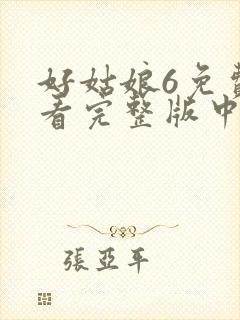 好姑娘6免費
看完整版中
張亞平